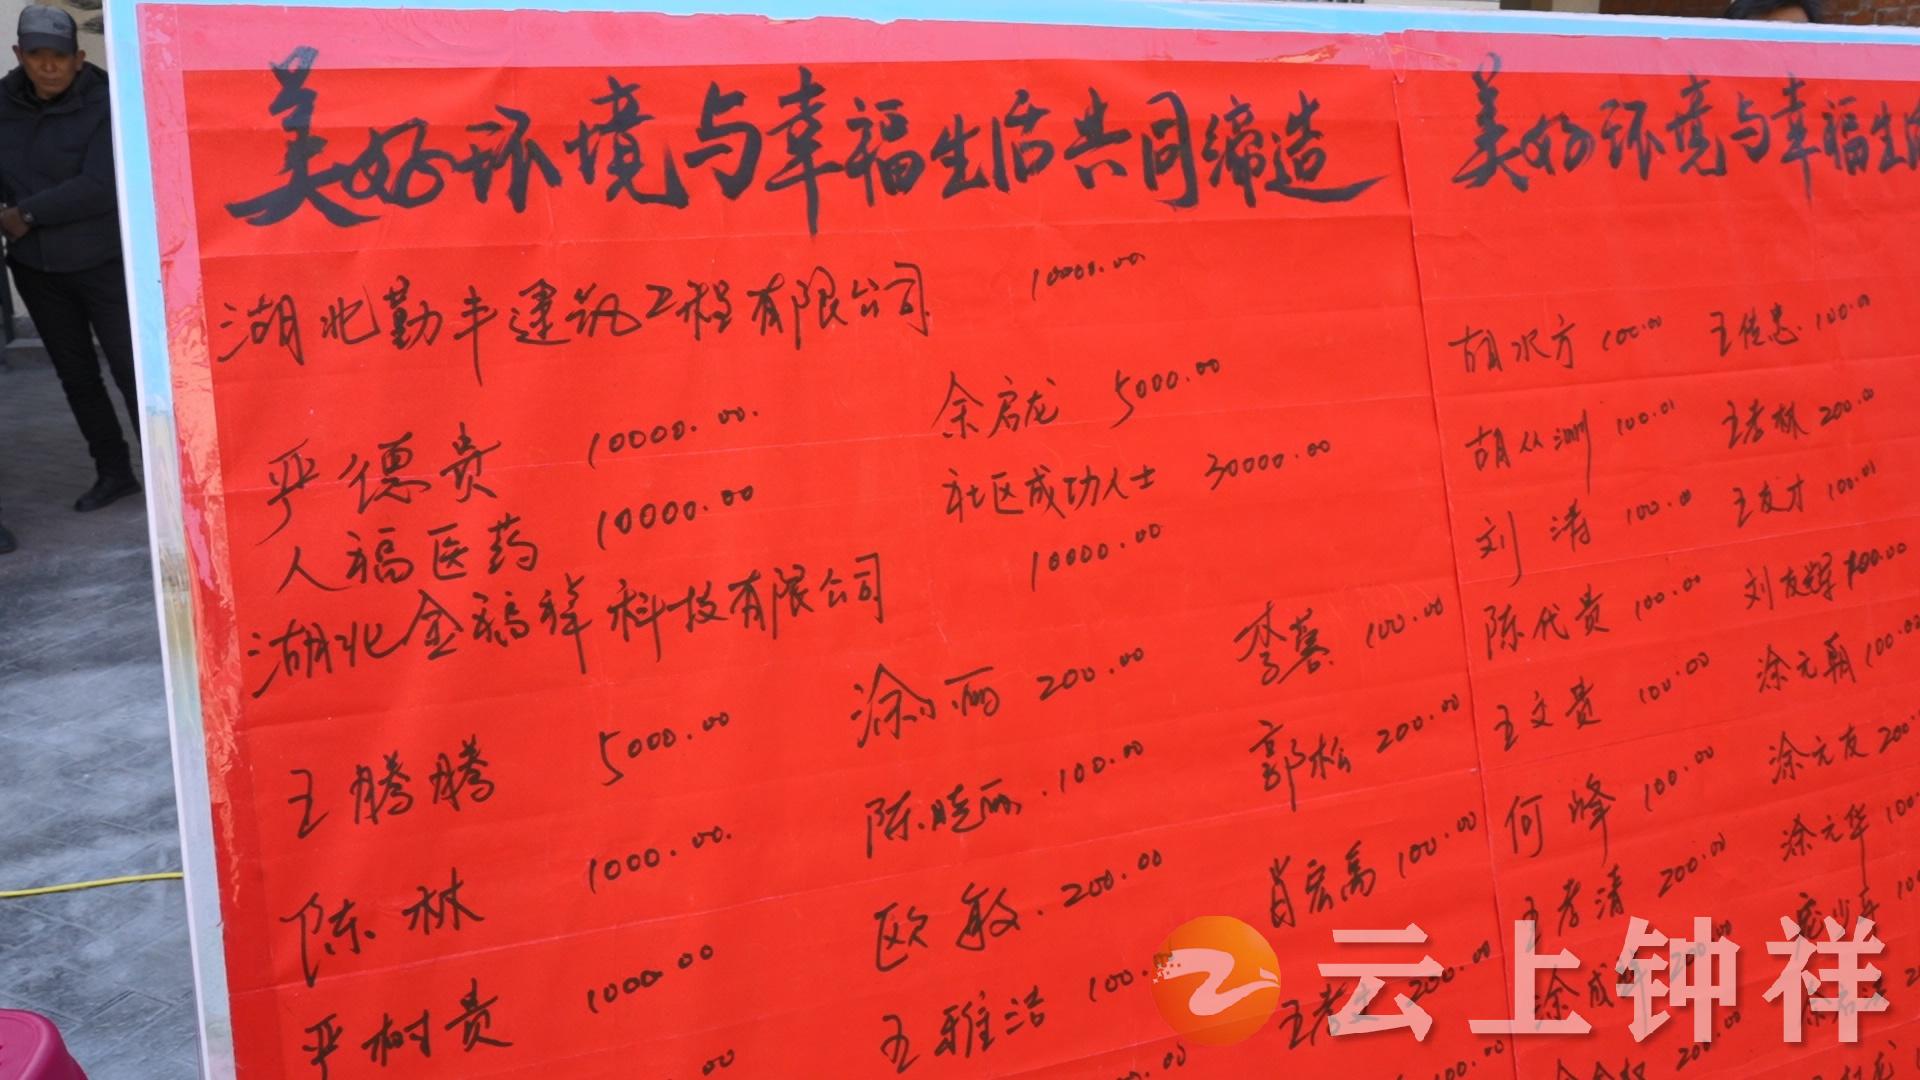 美好环境与幸福生活共同缔造
湖北勤丰建筑工程有限公司 10000.00
严德贵 10000.00. 余启龙 5000.00
人福医药 10000.00 社区成功人士 30000.00
湖北金福祥科技有限公司 10000.00
王腾腾 5000.00 涂丽 200.00 李喜 100.00
陈林 1000.00. 陈晓丽.100.00 郭松 200.00
严树贵 1000.00 欧敏.200.00 肖宏禹 100.00
王雅洁 100. 王孝 200.00
美好环境与幸福生
胡水方 100.00 王传忠.100.00
胡从洲 100.01 王孝林 200.00
刘涛 100.00 王友才 100.01
陈代贵 100.00 刘友辉 100.00
王文贵 100.00 涂元朝 100.00
何峰 100.00 涂元友 200.
王孝清 200.00 涂元华 100.
涂成 200
云上钟祥